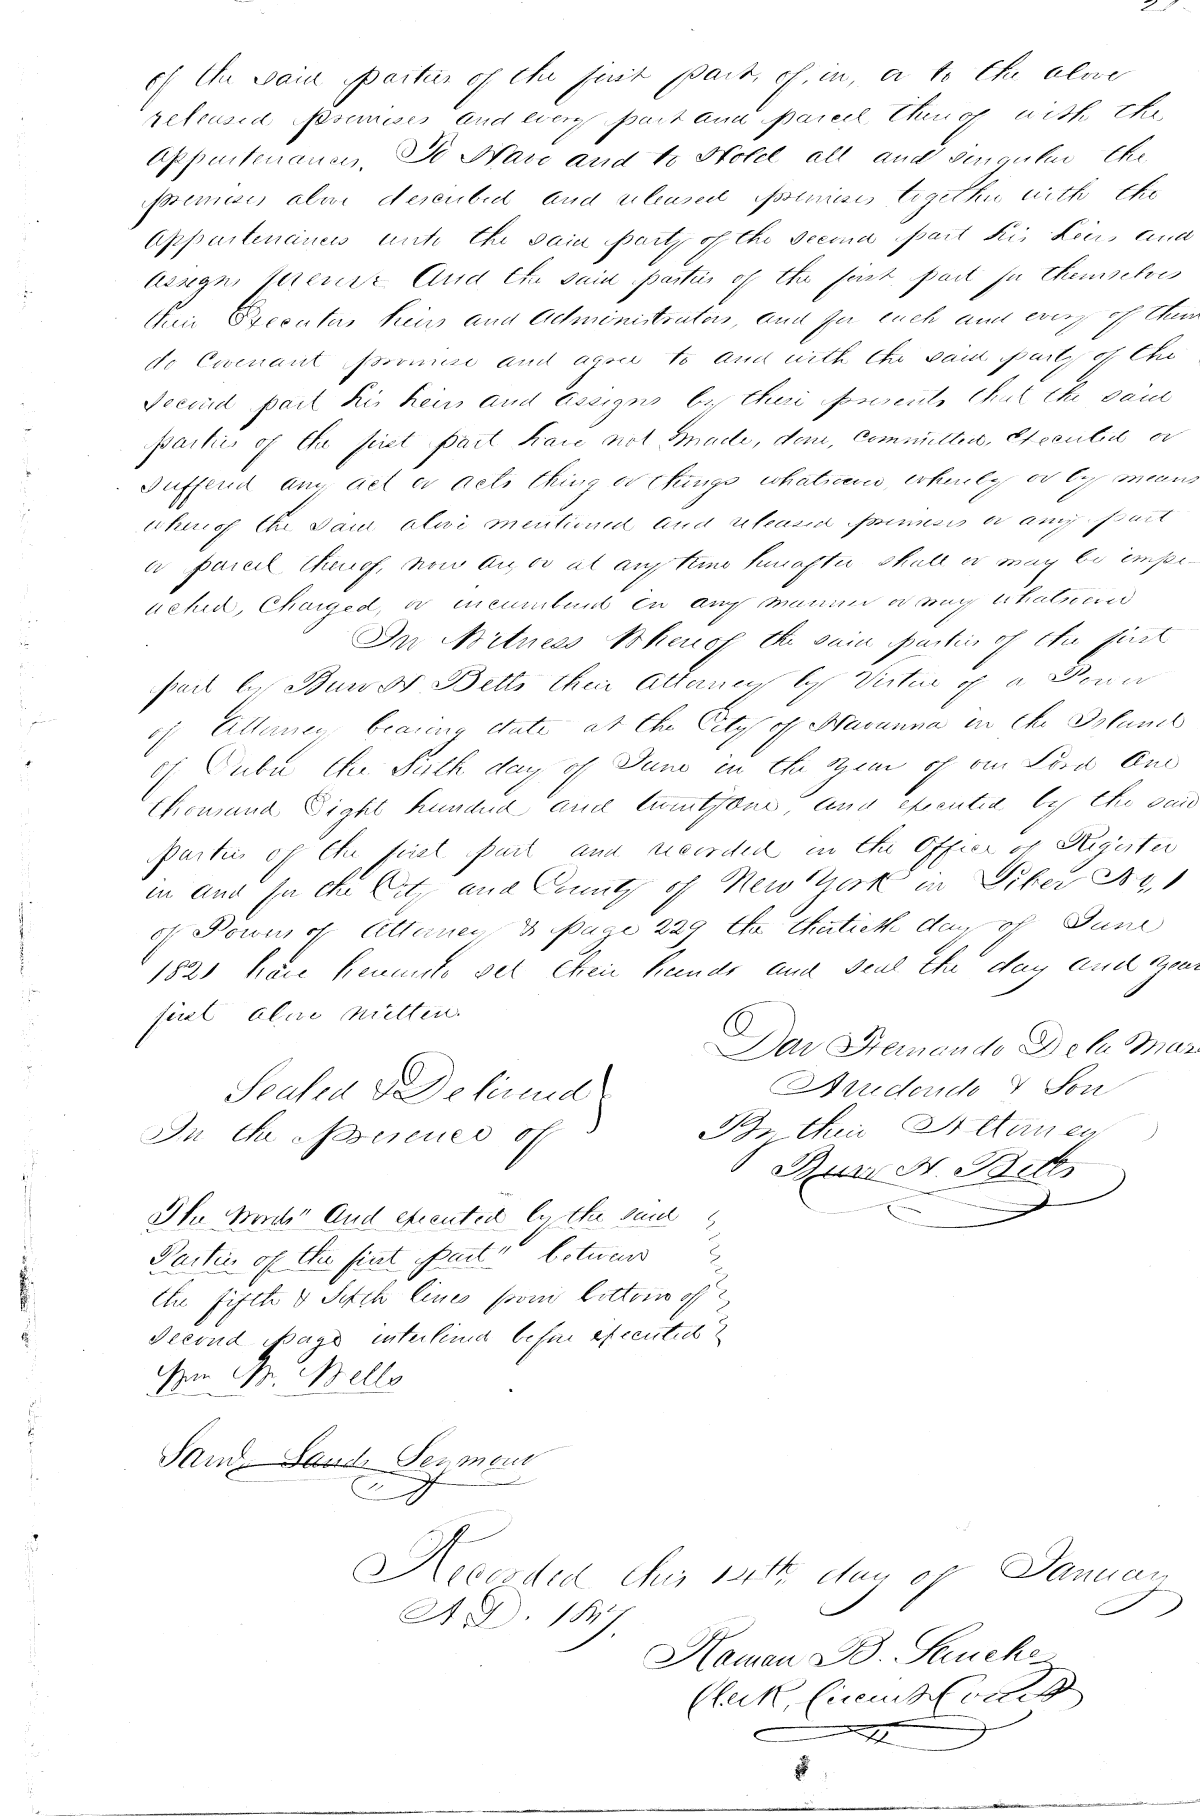 of the said parties of the first part, of, in, or to the above
released premises and every part and parcel thereof with the
appurtenances. To Have and to Hold all and singular the
premises above described and released premises together with the
appurtenances unto the said party of the second part his heirs and
assigns forever And the said parties of the first part for themselves
their Executors heirs and Administrators, and for each and every of them
do Covenant promise and agree to and with the said party of the
Second part his heirs and assigns by these presents that the said
parties of the first part have not made, done, committed, executed or
suffered any act or acts thing or things whatsoever, whereby or by means
whereof the said above mentioned and released premises or any part
or parcel thereof, now are, or at any time hereafter shall or may be impe-
ached, Charged, or incumbered in any manner or way whatsoever
In Witness Whereof the said parties of the first
part by Burr H. Betts their Attorney by Virtue of a Power
of Attorney bearing date at the City of Havanna in the Island
of Cuba the Sixth day of June in the year of our Lord One
thousand Eight hundred and twenty one, and executed by the said
parties of the first part and recorded in the Office of Register
in and for the City and County of New York in Liber No, 1
of Powers of Attorney & page 229 the thirtieth day of June
1821 have hereunto set their hands and seal the day and year
first above written.
Don Fernando De la Maza
Arredondo & Son
By their Attorney
Burr H. Betts
Sealed & Delivered
In the presence of
The words "And executed by the said
Parties of the first part" between
the fifth & Sixth lines from bottom of
second page interlined before executed
Wm W. Wells
Saml Seymour
Recorded this 14th day of January
A.D. 1847.
Raman B. Sanchez
Clerk, Circuit Court